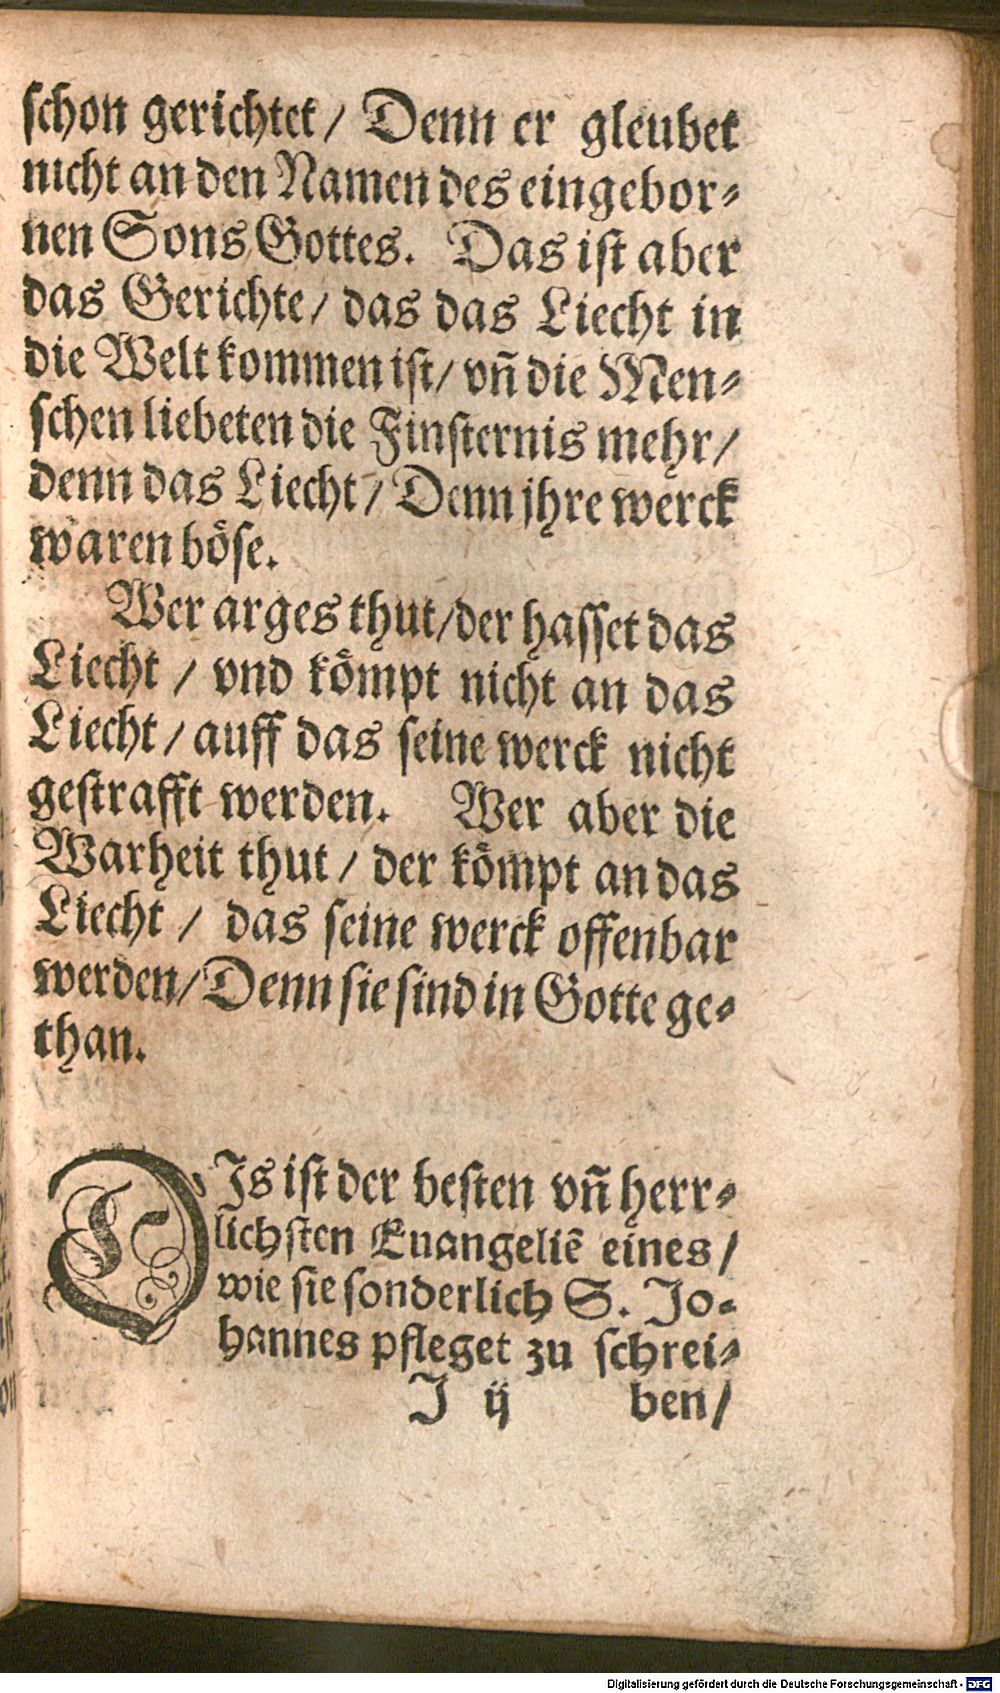 schon gerichtet / Denn er gleubet
nicht an den Namen des eingebor⸗
nen Sons Gottes. Das ist aber
das Gerichte / das das Liecht in
die Welt kommen ist / vñ die Men⸗
schen liebeten die Finsternis mehr /
denn das Liecht / Denn jhre werck
waren böse.
Wer arges thut / der hasset das
Liecht / vnd kömpt nicht an das
Liecht / auff das seine werck nicht
gestrafft werden. Wer aber die
Warheit thut / der kömpt an das
Liecht / das seine werck offenbar
werden / Denn sie sind in Gotte ge⸗
than.
DJs ist der besten vñ herr⸗
lichsten Euangeliẽ eines /
wie sie sonderlich S. Jo⸗
hannes pfleget zu schrei⸗
J ij ben /
Digitalisierung gefördert durch die Deutsche Forschungsgemeinschaft - DFG